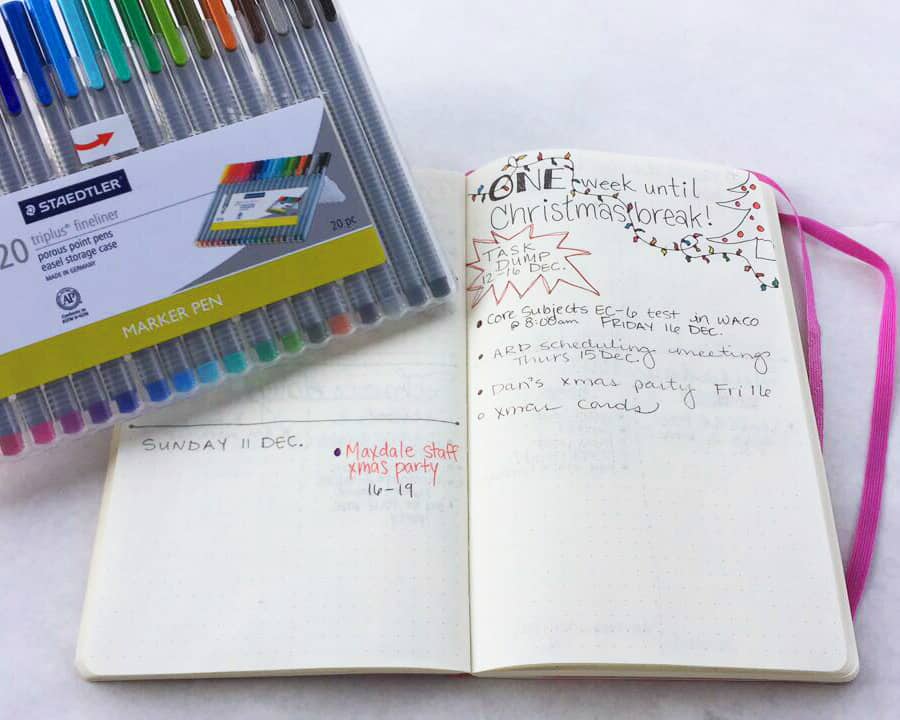 STAEDTLER
20 triplus® fineliner
porous point pens
easel storage case
MADE IN GERMANY
AP
20 pc
MARKER PEN
SUNDAY 11 DEC.
Maxdale staff
xmas party
16-19
ONE week until
Christmas break!
TASK
DUMP
12-16 DEC.
Core Subjects EC-6 test in WACO
@ 8:00am FRIDAY 16 DEC.
ARD scheduling meetings
Thurs 15 Dec.
Dan's xmas party Fri 16
xmas cards